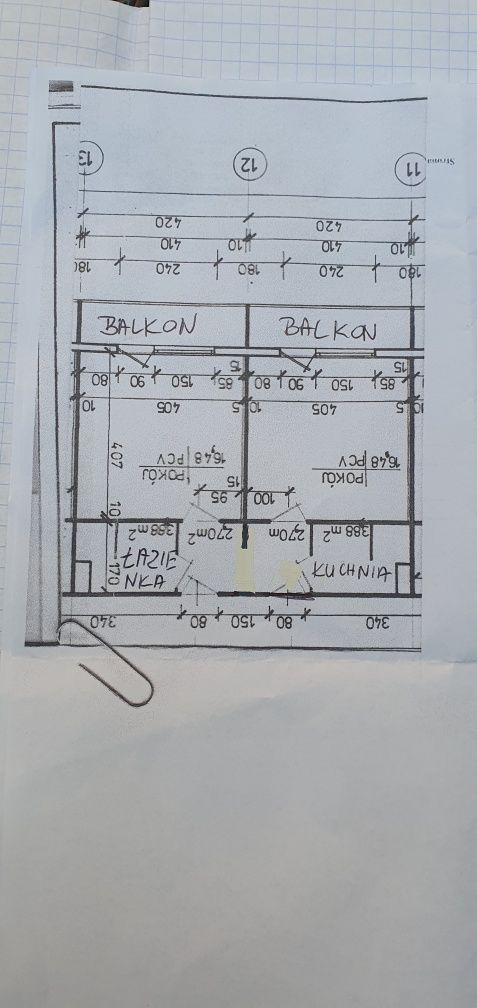 13 12 11
Strona
420 420
410 10 410 10
180 240 180 240 180
BALKON BALKON
15 15
80 90 150 85 80 90 150 85
10 405 5 10 405 5 10
407
POKÓJ 16,48 PCV
POKÓJ 16,48 PCV
15
95 100
10
3.88 m² 2,70m² 2,70m² 3.88 m²
170
ŁAZIE
NKA
KUCHNIA
340 80 150 80 340